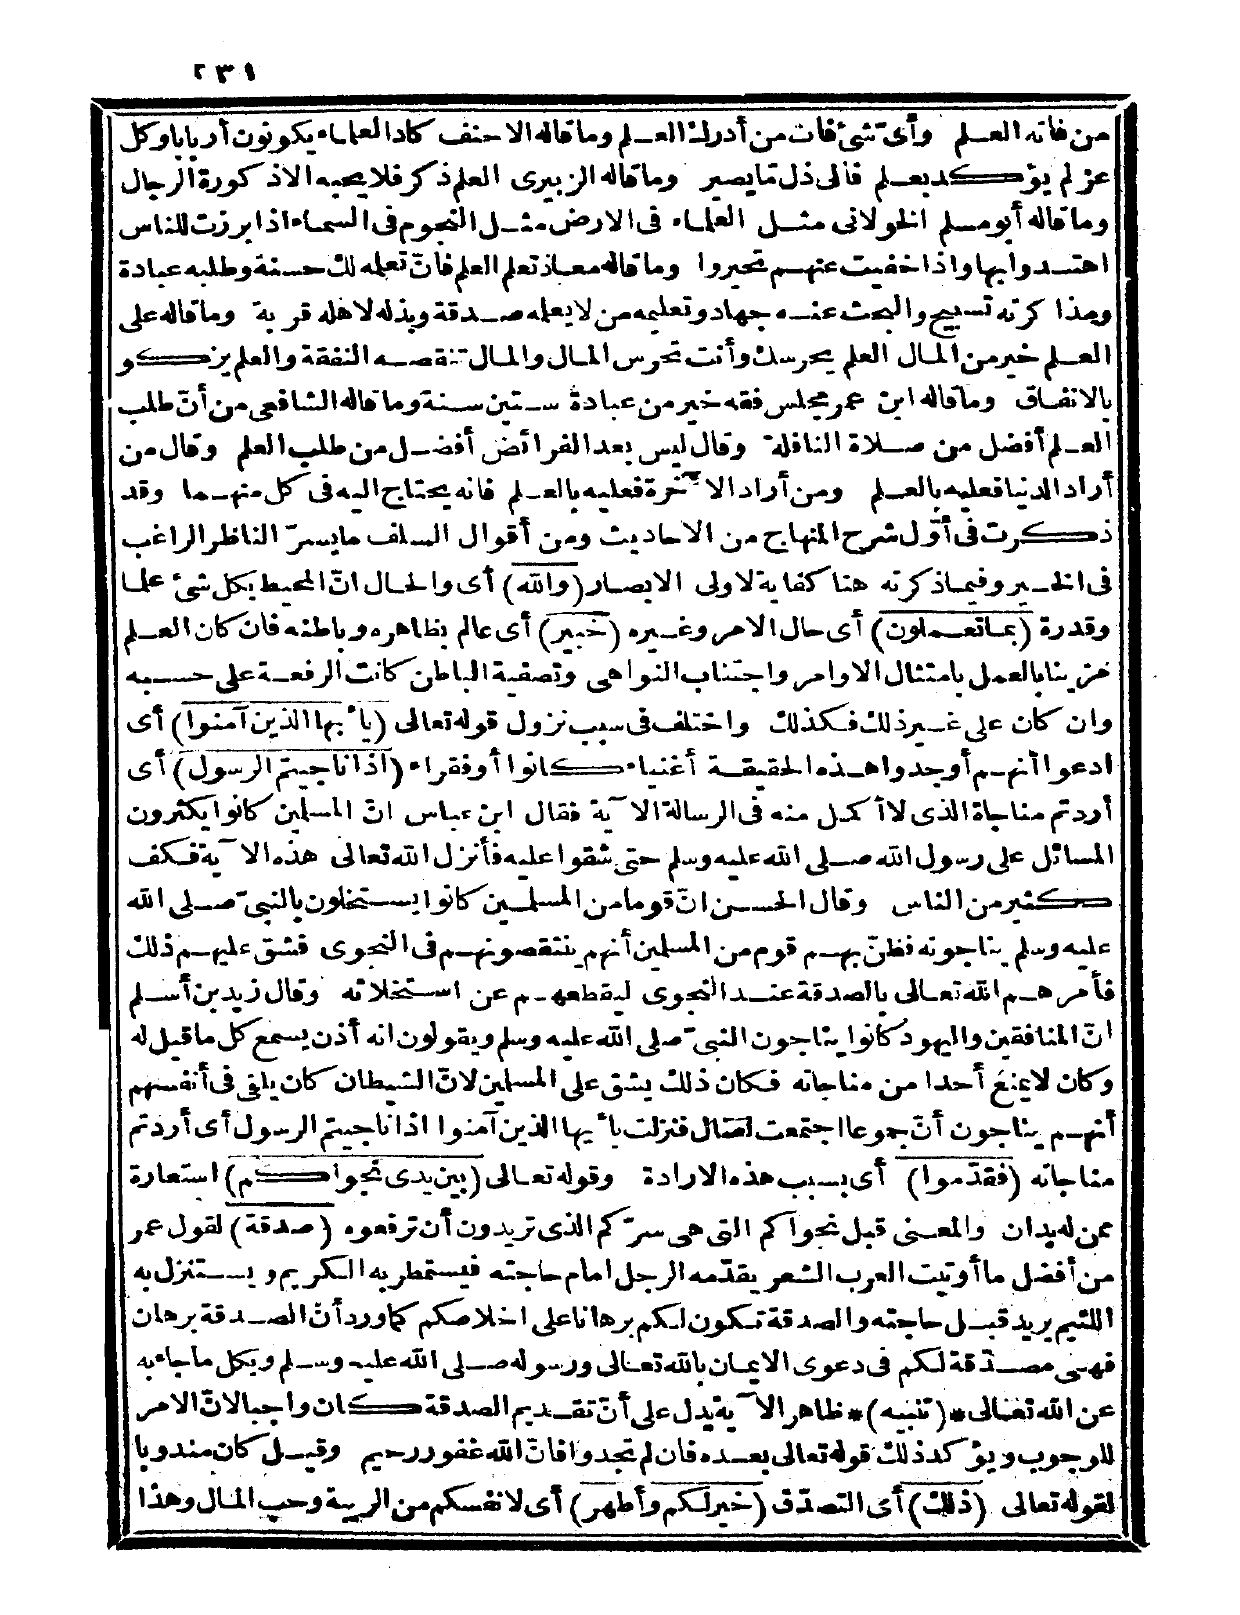 ٢٣١
من فاته العلم وأى شئ فات من أدرك العلم وما قاله الاحنف كاد العلماء يكونون أربابا وكل
عز لم يؤكد بعلم فالى ذل ما يصير وما قاله الزبيرى العلم ذكر فلا يحبه الاذكورة الرجال
وما قاله أبو مسلم الخولانى مثل العلماء فى الارض مثل النجوم فى السماء اذا برزت للناس
اهتدوا بها واذا خفيت عنهم تحيروا وما قاله معاذ تعلم العلم فانّ تعلمه لك حسنة وطلبه عبادة
ومذاكرته تسبيح والبحث عنه جهاد وتعليمه من لا يعلمه صدقة وبذله لاهله قربة وما قاله على
العلم خير من المال العلم يحرسك وأنت تحرس المال والمال تنقصه النفقة والعلم يزكو
بالانفاق وما قاله ابن عمر مجلس فقه خير من عبادة ستين سنة وما قاله الشافعى من أنّ طلب
العلم أفضل من صلاة النافلة وقال ليس بعد الفرائض أفضل من طلب العلم وقال من
أراد الدنيا فعليه بالعلم ومن أراد الآخرة فعليه بالعلم فانه يحتاج اليه فى كل منهما وقد
ذكرت فى أوّل شرح المنهاج من الاحاديث ومن أقوال السلف ما يسرّ الناظر الراغب
فى الخير وفيما ذكرته هنا كفاية لاولى الابصار (والله) أى والحال انّ المحيط بكل شئ علما
وقدرة (بما تعملون) أى حال الامر وغيره (خبير) أى عالم بظاهره وباطنه فان كان العلم
مزينا بالعمل بامتثال الاوامر واجتناب النواهى وتصفية الباطن كانت الرفعة على حسبه
وان كان على غير ذلك فكذلك واختلف فى سبب نزول قوله تعالى (يا أيها الذين آمنوا) أى
ادعوا أنهم أوجدوا هذه الحقيقة أغنياء كانوا أو فقراء (اذا ناجيتم الرسول) أى
أردتم مناجاة الذى لا أكمل منه فى الرسالة الآية فقال ابن عباس انّ المسلمين كانوا يكثرون
المسائل على رسول الله صلى الله عليه وسلم حتى شقوا عليه فأنزل الله تعالى هذه الآية فكف
كثير من الناس وقال الحسن انّ قوما من المسلمين كانوا يستخلون بالنبىّ صلى الله
عليه وسلم يناجونه فظنّ بهم قوم من المسلمين أنهم ينتقصونهم فى النجوى فشق عليهم ذلك
فأمرهم الله تعالى بالصدقة عند النجوى ليقطعهم عن استخلائه وقال زيد بن أسلم
انّ المنافقين واليهود كانوا يناجون النبىّ صلى الله عليه وسلم ويقولون انه أذن يسمع كل ما قيل له
وكان لا يمنع أحدا من مناجاته فكان ذلك يشق على المسلمين لانّ الشيطان كان يلقى فى أنفسهم
أنهم يناجون أنّ جموعا اجتمعت لقتال فنزلت يا أيها الذين آمنوا اذا ناجيتم الرسول أى أردتم
مناجاته (فقدّموا) أى بسبب هذه الارادة وقوله تعالى (بين يدى نجواكم) استعارة
ممن له يدان والمعنى قبل نجواكم التى هى سرّكم الذى تريدون أن ترفعوه (صدقة) لقول عمر
من أفضل ما أوتيت العرب الشعر يقدّمه الرجل امام حاجته فيستمطر به الكريم ويستنزل به
اللئيم يريد قبل حاجته والصدقة تكون لكم برهانا على اخلاصكم كما ورد أنّ الصدقة برهان
فهى مصدّقة لكم فى دعوى الايمان بالله تعالى ورسوله صلى الله عليه وسلم وبكل ما جاء به
عن الله تعالى *(تنبيه)* ظاهر الآية يدل على أنّ تقديم الصدقة كان واجبا لانّ الامر
للوجوب ويؤكد ذلك قوله تعالى بعده فان لم تجدوا فانّ الله غفور رحيم وقيل كان مندوبا
لقوله تعالى (ذلك) أى التصدّق (خير لكم وأطهر) أى لانفسكم من الريبة وحب المال وهذا